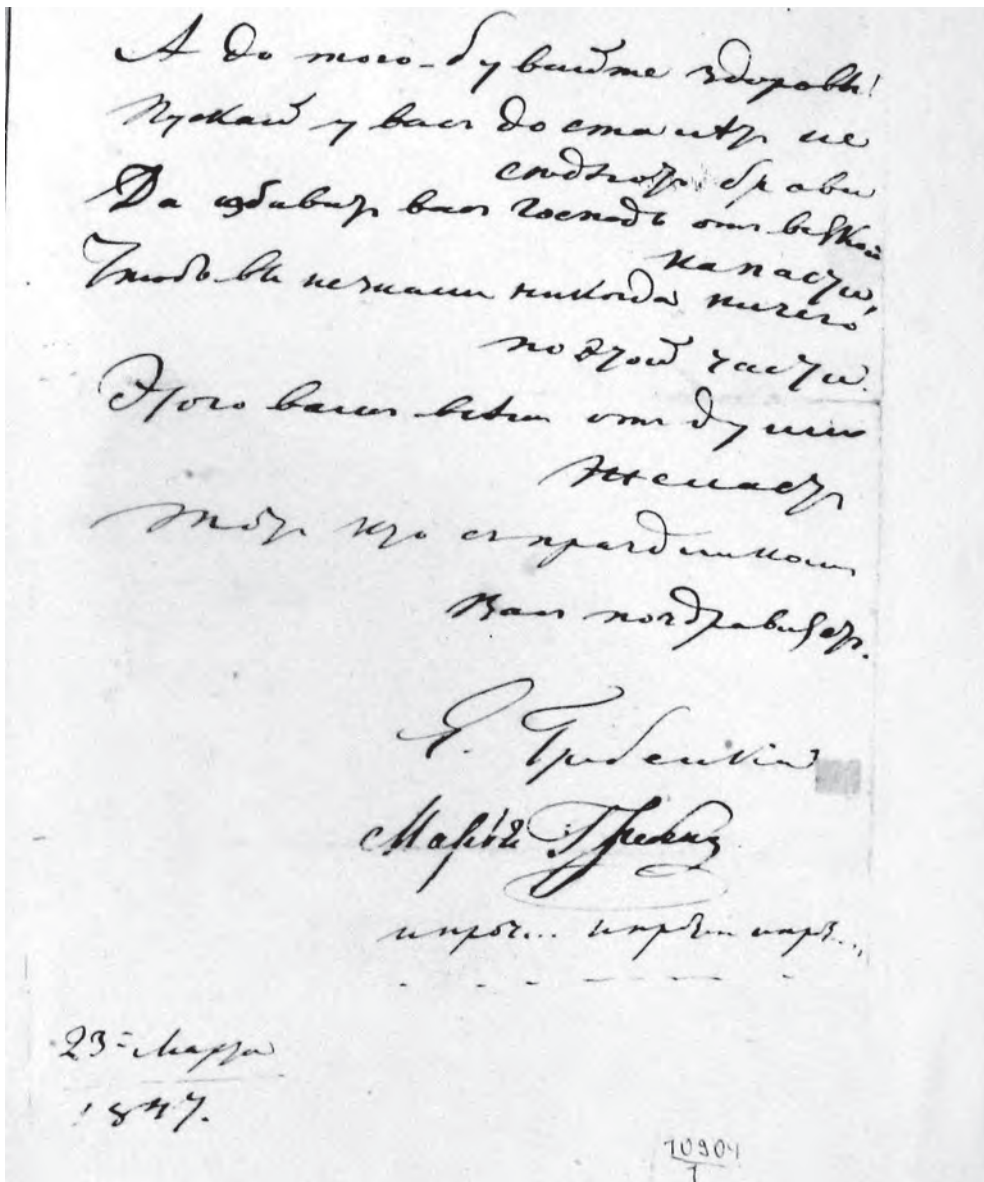 А до того-бувайте здоровы!
Пускай у васъ до ста лѣтъ не
сѣдѣютъ брови
Да избавитъ васъ Господь отъ всякой
напасти,
Чтобъ вы незнали никогда ничего
по этой части.
Этого вамъ всѣмъ отъ души
Желаетъ
Тотъ кто съ праздникомъ
Васъ поздравляетъ.
Е. Гребенка
ипроч... ипроч... ипроч...
23= Марта
1847.
10904
1